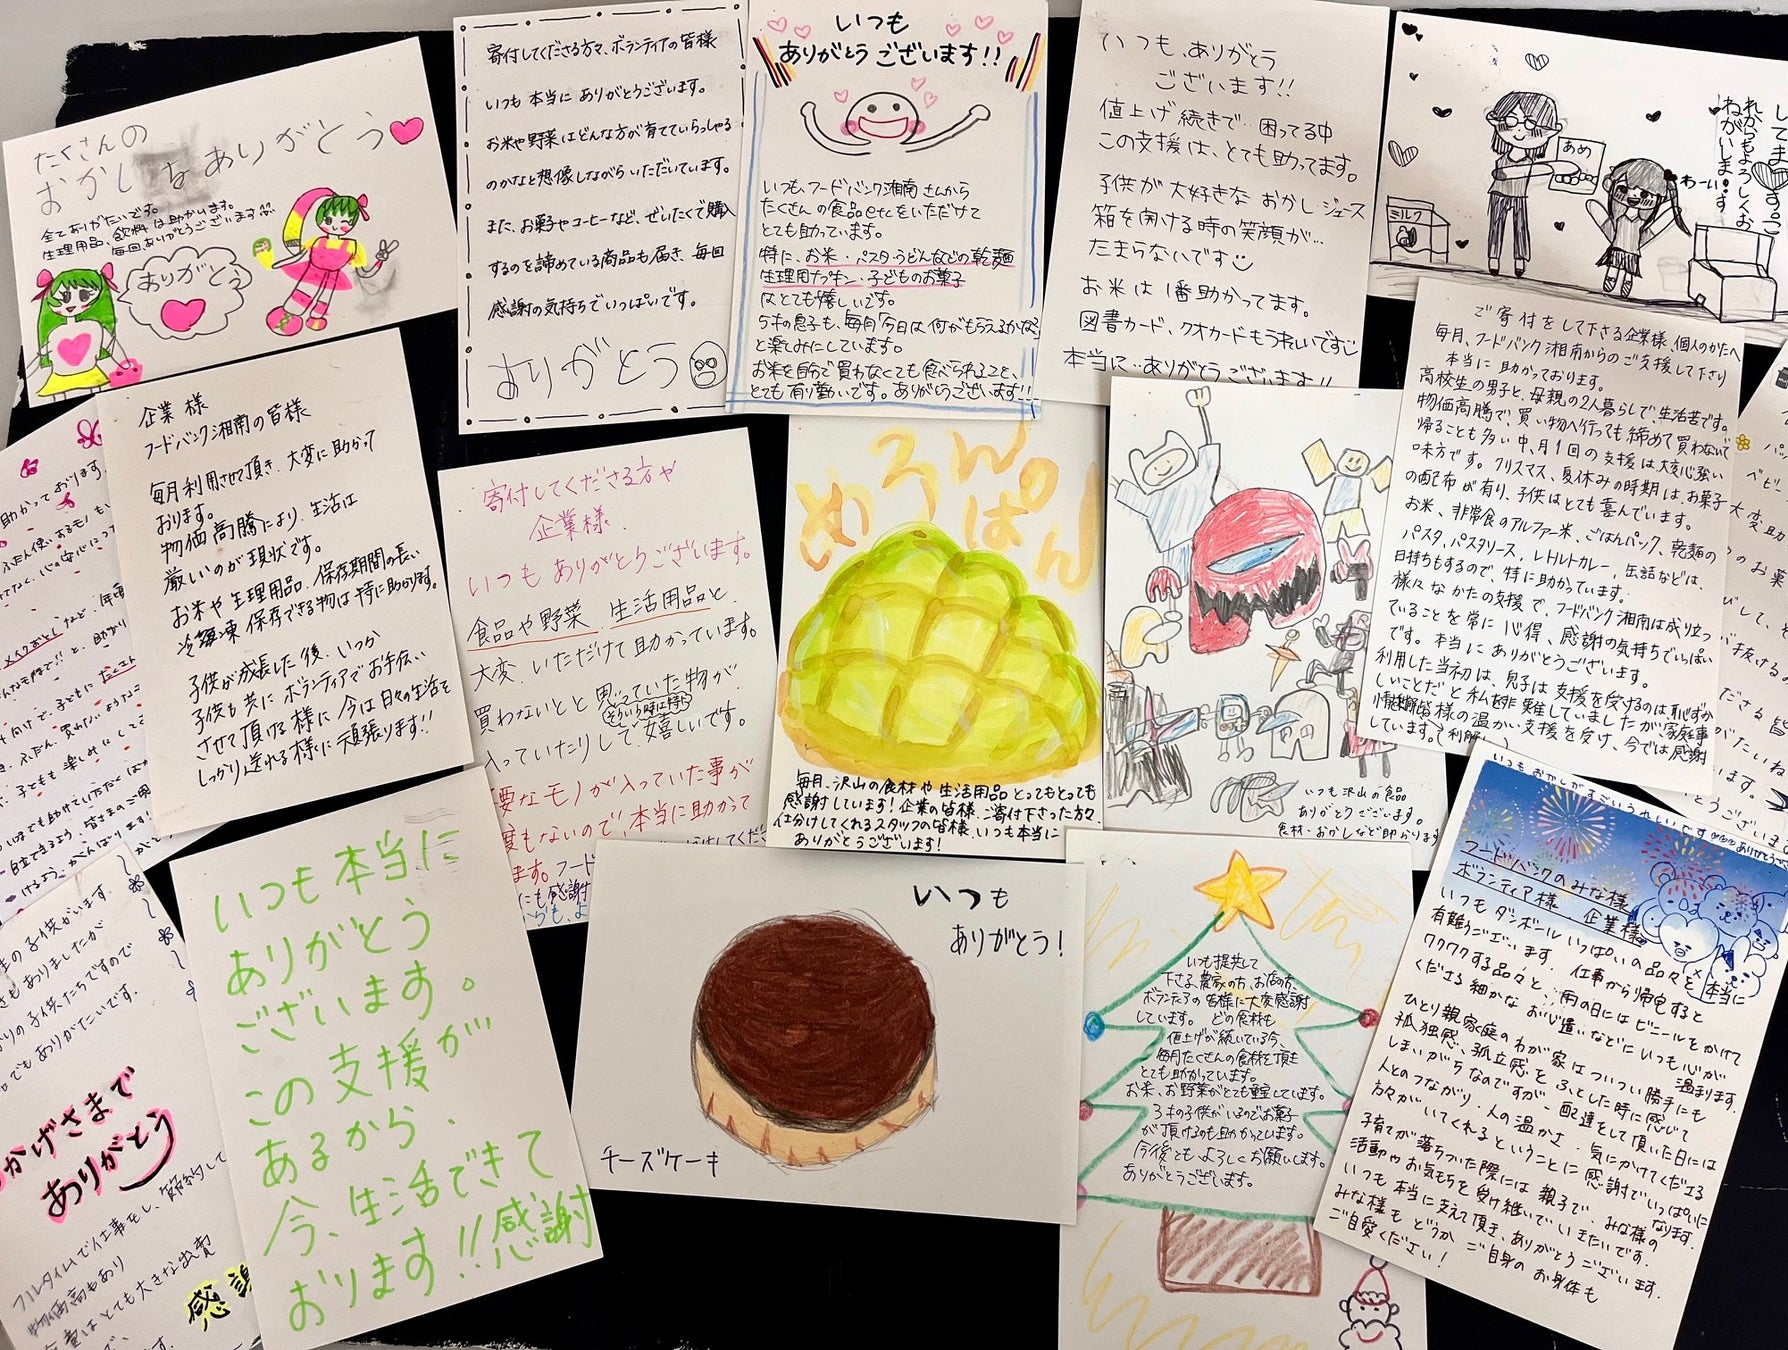 たくさんの
おかし
ありがとう
全てありがたいです。
生理用品、飲料は助かります。
毎回ありがとうございます
ありがとう
寄付してくださる方々、ボランティアの皆様
いつも本当にありがとうございます。
お米や野菜はどんな方が育てていらっしゃる
のかなと想像しながらいただいています。
また、お菓子やコーヒーなど、ぜいたくで購入
するのを諦めている商品も届き、毎回
感謝の気持ちでいっぱいです。
ありがとう
いつも
ありがとうございます!!
いつも、フードバンク湘南さんから
たくさんの食品etcをいただけて
とても助っています。
特に、お米・パスタ・うどんなどの乾麺
生理用ナプキン・子どものお菓子
はとても嬉しいです。
5才の息子も、毎月「今日は何がもらえるかな」
と楽しみにしています。
お米を自分で買わなくても食べられること、
とても有り難いです。ありがとうございます!!
いつも、ありがとう
ございます!!
値上げ続きで…困ってる中
この支援は、とても助ってます。
子供が大好きなおかし・ジュース
箱を開ける時の笑顔が…
たまらないです
お米は1番助かってます。
図書カード、クオカードもうれしいです
本当に…ありがとうございます!!
してます。こ
れからもよろしくお
ねがいします。
あめ
わーい
ミルク
ご寄付をして下さる企業様、個人のかたへ
毎月、フードバンク湘南からのご支援して下さり
本当に助かっております。
高校生の男子と、母親の2人暮らしで、生活苦です。
物価高騰で、買い物へ行っても締めて買わないで
帰ることも多い中、月1回の支援は大変心強い
味方です。クリスマス、夏休みの時期は、お菓子
の配布が有り、子供はとても喜んでいます。
お米、非常食のアルファー米、ごはんパック、乾麺の
パスタ、パスタソース、レトルトカレー、缶詰などは、
日持ちもするので、特に助かっています。
様々なかたの支援で、フードバンク湘南は成り立っ
ていることを常に心得、感謝の気持ちでいっぱい
です。本当にありがとうございます。
利用した当初は、息子は支援を受けるのは、恥ずか
しいことだと私を非難していましたが、家庭事
皆様の温かい支援を受け、今では感謝
しています。
企業様
フードバンク湘南の皆様
毎月利用させて頂き、大変に助かって
おります。
物価高騰により、生活は
厳しいのが現状です。
お米や生理用品、保存期間の長い
冷凍保存できる物は特に助かります。
子供が成長した後、いつか
子供も共にボランティアでお手伝い
させて頂ける様に今は日々の生活を
しっかり送れる様に頑張ります!!
寄付してくださる方や
企業様、
いつもありがとうございます。
食品や野菜、生活用品と、
大変、いただけて助かっています。
買わないとと思っていた物が
そういう時は特に
入っていたりして、嬉しいです。
要なモノが入っていた事が
度もないので、本当に助かって
ます。フード
にも感謝
めろんぱん
毎月、沢山の食材や生活用品とってもとっても
感謝しています!企業の皆様、ご寄付下さった方々、
仕分けしてくれるスタッフの皆様、いつも本当に
ありがとうございます!
いつも沢山の食品
ありがとうございます。
食材・おかしなど助かります
いつも本当に
ありがとう
ございます。
この支援が
あるから、
今、生活できて
おります!!感謝
いつも
ありがとう!
チーズケーキ
いも提供して
下さる、農家の方、お店の方、
ボランティアの皆様に大変感謝
しています。どの食材も
値上げが続いている今、
毎月たくさんの食材を頂き
とても助かっています。
お米、お野菜がとても重宝しています。
3才の子供がいるのでお菓子
が頂けるのも助かっています。
今後ともよろしくお願いします。
ありがとうございます。
いつもおかしがすごいうれしいです
ありがとうござい
フードバンクのみな様
ボランティア様、企業様
いつもダンボールいっぱいの品々を本当に
有難うございます。仕事から帰宅すると
ワクワクする品々と、雨の日にはビニールをかけて
くださる細かなお心遣いなどにいつも心が温まります。
ひとり親家庭のわが家はついつい勝手にも
孤独感、孤立感をふとした時に感じて
しまいがちなのですが、配達をして頂いた日には
人とのつながり、人の温かさ、気にかけてくださる
方々がいてくれるということに感謝でいっぱいになります。
子育てが落ちついた際には親子で、みな様の
活動やお気もちを受け継いでいきたいです。
いつも本当に支えて頂き、ありがとうございます。
みな様もどうかご自身のお身体も
ご自愛ください!
助かっております。
ふだん使いするモノも
子供がいます。
さもありましたが
の子供たちですので
でもありがたいです。
かげさまで
ありがとう
フルタイムで仕事をし、節約して
物価高もあり
費はとても大きな出費
感謝